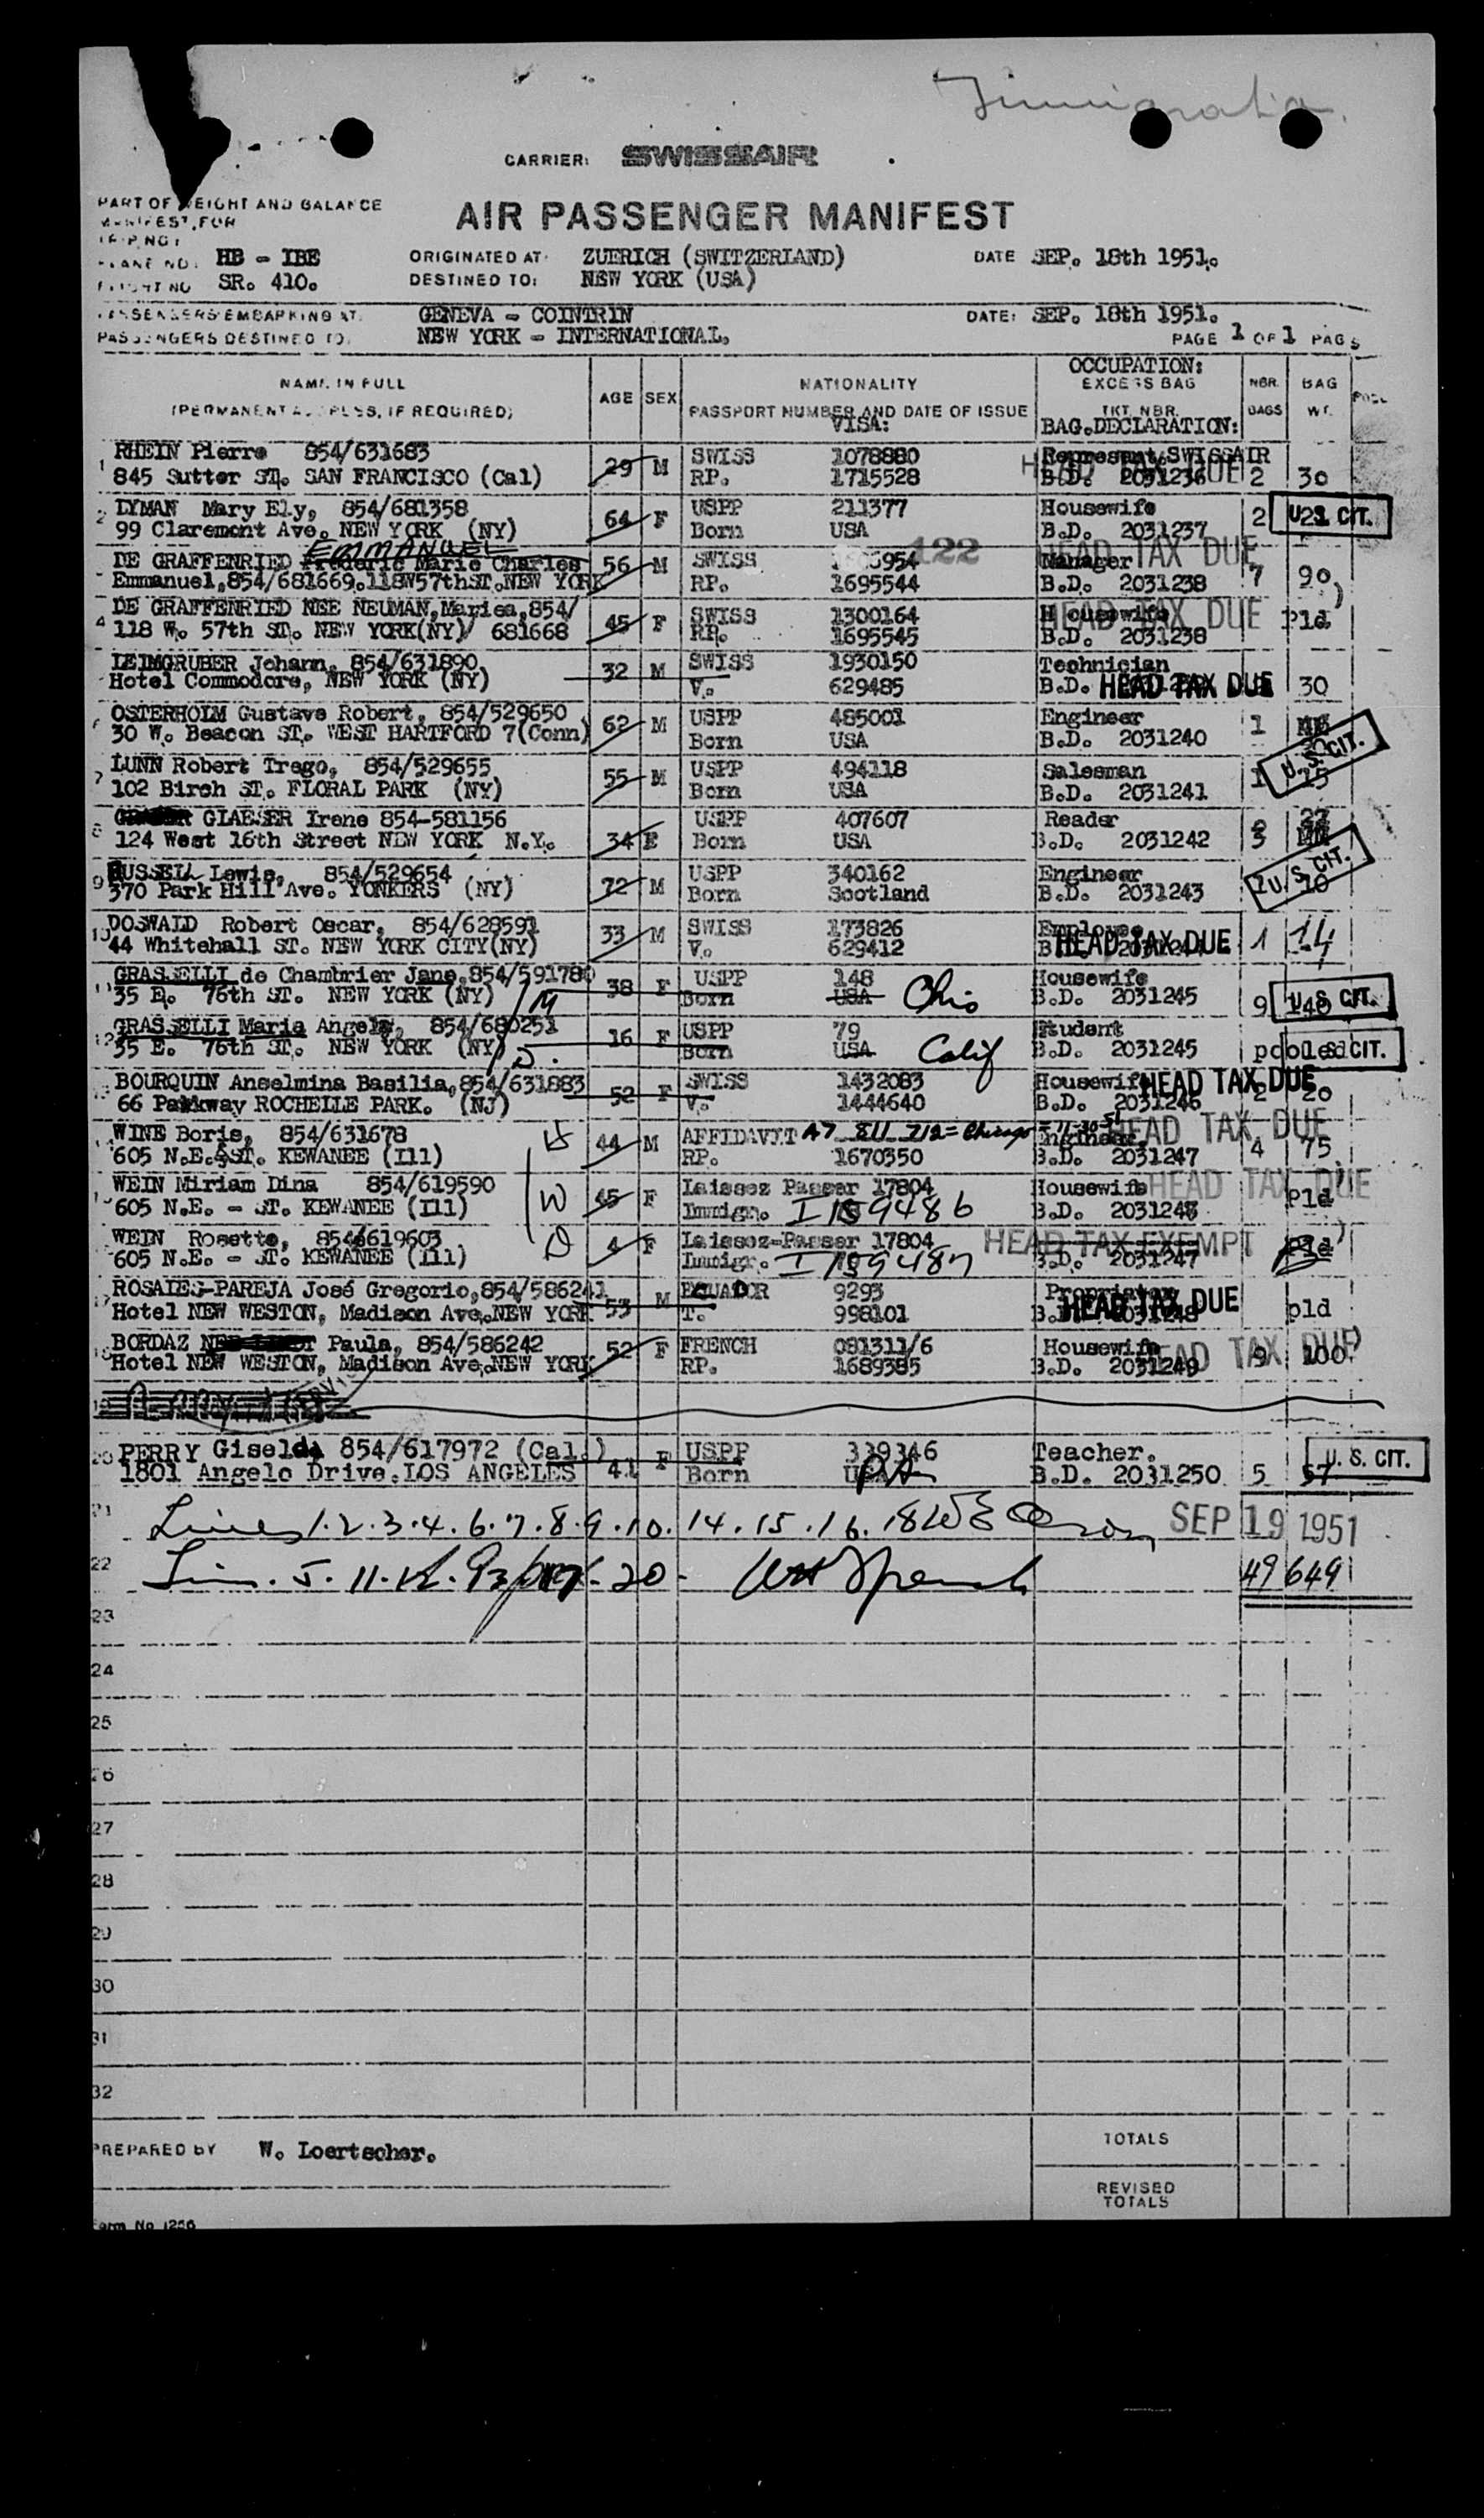 Immigration.
CARRIER: SWISSAIR
PART OF WEIGHT AND BALANCE
MANIFEST, FOR
AIR PASSENGER MANIFEST
TRIP NO:
PLANE NO: HB - IBE ORIGINATED AT: ZUERICH (SWITZERLAND) DATE SEP. 18th 1951.
FLIGHT NO SR. 410. DESTINED TO: NEW YORK (USA)
PASSENGERS EMBARKING AT: GENEVA - COINTRIN DATE: SEP. 18th 1951.
PASSENGERS DESTINED TO: NEW YORK - INTERNATIONAL. PAGE 1 OF 1 PAGS
OCCUPATION:
NAME IN FULL AGE SEX NATIONALITY EXCESS BAG NBR. BAG
(PERMANENT ADDRESS, IF REQUIRED) PASSPORT NUMBER AND DATE OF ISSUE TKT. NBR. BAGS WT.
VISA: BAG.DECLARATION:
1 RHEIN Pierre 854/631683 29 M SWISS 1078880 Represent.SWISSAIR
845 Sutter ST. SAN FRANCISCO (Cal) RP. 1715528 B.D. 2031236 HEAD TAX DUE 2 30
2 LYMAN Mary Ely, 854/681358 64 F USPP 211377 Housewife
99 Claremont Ave. NEW YORK (NY) Born USA B.D. 2031237 2 U.S. CIT.
EMMANUEL
DE GRAFFENRIED Frederic Marie Charles 56 M SWISS 954 122 Manager HEAD TAX DUE
Emmanuel,854/681669.118W57thST.NEW YORK RP. 1695544 B.D. 2031238 7 90
4 DE GRAFFENRIED NEE NEUMAN,Mariea,854/ 45 F SWISS 1300164 Housewife HEAD TAX DUE
118 W. 57th ST. NEW YORK(NY) 681668 RP. 1695545 B.D. 2031238 Pld
LEIMGRUBER Johann, 854/631890 32 M SWISS 1930150 Technician
Hotel Commodore, NEW YORK (NY) V. 629485 B.D. HEAD TAX DUE 30
6 OSTERHOLM Gustave Robert, 854/529650 62 M USPP 485001 Engineer
30 W. Beacon ST. WEST HARTFORD 7(Conn) Born USA B.D. 2031240 1
7 LUNN Robert Trego, 854/529655 55 M USPP 494118 Salesman U.S. CIT.
102 Birch ST. FLORAL PARK (NY) Born USA B.D. 2031241 1 15
8 GLAESER Irene 854-581156 34 F USPP 407607 Reader
124 West 16th Street NEW YORK N.Y. Born USA B.D. 2031242 3
9 RUSSELL Lewis, 854/529654 72 M USPP 340162 Engineer U.S. CIT.
370 Park Hill Ave. YONKERS (NY) Born Scotland B.D. 2031243 1 10
10 DOSWALD Robert Oscar, 854/628591 33 M SWISS 173826 Employee
44 Whitehall ST. NEW YORK CITY(NY) V. 629412 HEAD TAX DUE 1 14
11 GRASSELLI de Chambrier Jane,854/591780 38 F USPP 148 Housewife
35 E. 76th ST. NEW YORK (NY) M Born USA Ohio B.D. 2031245 9 148 U.S. CIT.
12 GRASSELLI Maria Angela, 854/680251 16 F USPP 79 Student
35 E. 76th ST. NEW YORK (NY) D. Born USA Calif B.D. 2031245 pooled U.S. CIT.
BOURQUIN Anselmina Basilia,854/631883 52 F SWISS 1432083 Housewife HEAD TAX DUE
66 Parkway ROCHELLE PARK. (NJ) V. 1444640 B.D. 2031246 2 20
WINE Boris, 854/631678 44 M AFFIDAVIT A7 811 712 = Chicago = 11-30-51 Engineer, HEAD TAX DUE
605 N.E. ST. KEWANEE (Ill) RP. 1670350 B.D. 2031247 4 75
WEIN Miriam Dina 854/619590 W 45 F Laissez Passer 17804 Housewife HEAD TAX DUE
605 N.E. - ST. KEWANEE (Ill) Immigr. I 1859486 B.D. 2031247 Pld
WEIN Rosette, 854/619603 D 4 F Laissez-Passer 17804 HEAD TAX EXEMPT
605 N.E. - ST. KEWANEE (Ill) Immigr. I 1859487 B.D. 2031247 Pld
17 ROSALES-PAREJA José Gregorio,854/586241 53 M ECUADOR 9293 Proprietor
Hotel NEW WESTON, Madison Ave,NEW YORK T. 998101 B.D. 2031248 HEAD TAX DUE pld
18 BORDAZ Paula, 854/586242 52 F FRENCH 081311/6 Housewife HEAD TAX DUE
Hotel NEW WESTON, Madison Ave,NEW YORK RP. 1689385 B.D. 2031249 9 100
20 PERRY Giselda 854/617972 (Cal.) 41 F USPP 339346 Teacher.
1801 Angelo Drive.LOS ANGELES Born USA B.D. 2031250 5 57 U. S. CIT.
21 Lines 1.2.3.4.6.7.8.9.10.14.15.16.18 SEP 19 1951
22 49 649
23
24
25
26
27
28
29
30
31
32
PREPARED BY W. Loertscher. TOTALS
REVISED
TOTALS
Form No 1256